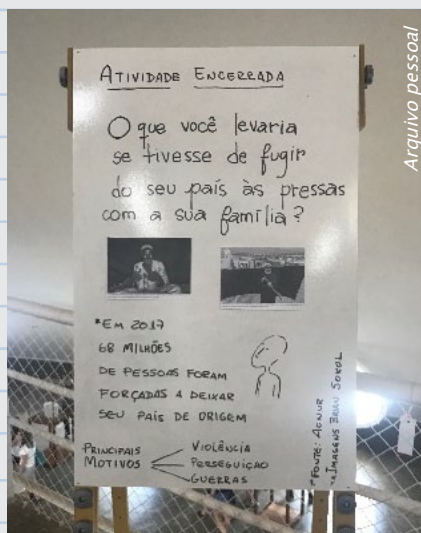 ATIVIDADE ENCERRADA
O que você levaria
se tivesse de fugir
do seu país às pressas
com a sua família?
*EM 2017
68 MILHÕES
DE PESSOAS FORAM
FORÇADAS A DEIXAR
SEU PAÍS DE ORIGEM
PRINCIPAIS
MOTIVOS
VIOLÊNCIA
PERSEGUIÇÃO
GUERRAS
*FONTE: ACNUR
**IMAGENS BRIAN SOKOL
Arquivo pessoal